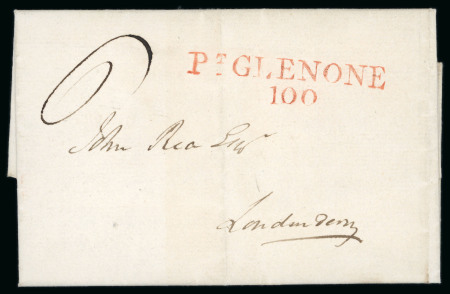 6
PT GLENONE
100
John Rea Esqr
Londonderry